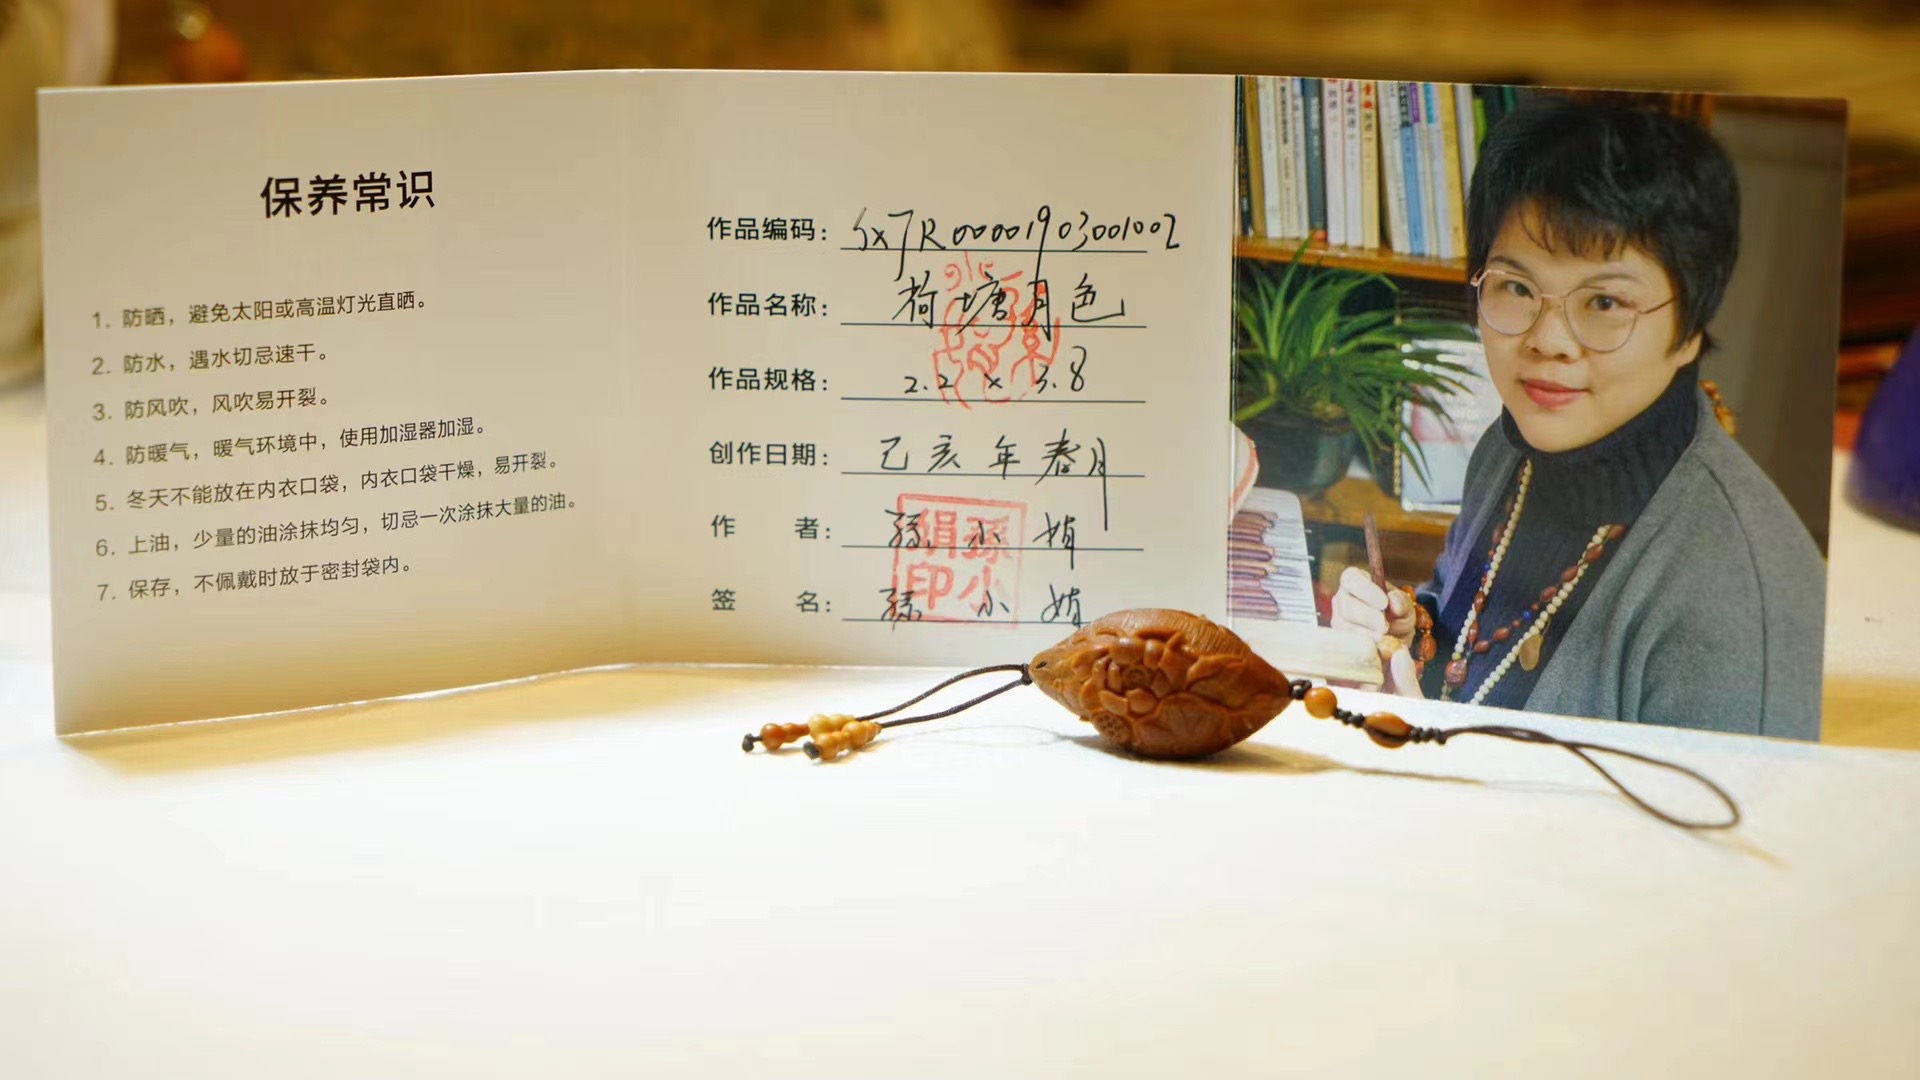 保养常识
1. 防晒，避免太阳或高温灯光直晒。
2. 防水，遇水切忌速干。
3. 防风吹，风吹易开裂。
4. 防暖气，暖气环境中，使用加湿器加湿。
5. 冬天不能放在内衣口袋，内衣口袋干燥，易开裂。
6. 上油，少量的油涂抹均匀，切忌一次涂抹大量的油。
7. 保存，不佩戴时放于密封袋内。
作品编码：
作品名称：荷塘月色
作品规格：2.2 × 3.8
创作日期：己亥年春月
作 者：孙小娟
签 名：孙小娟
孫小娟印